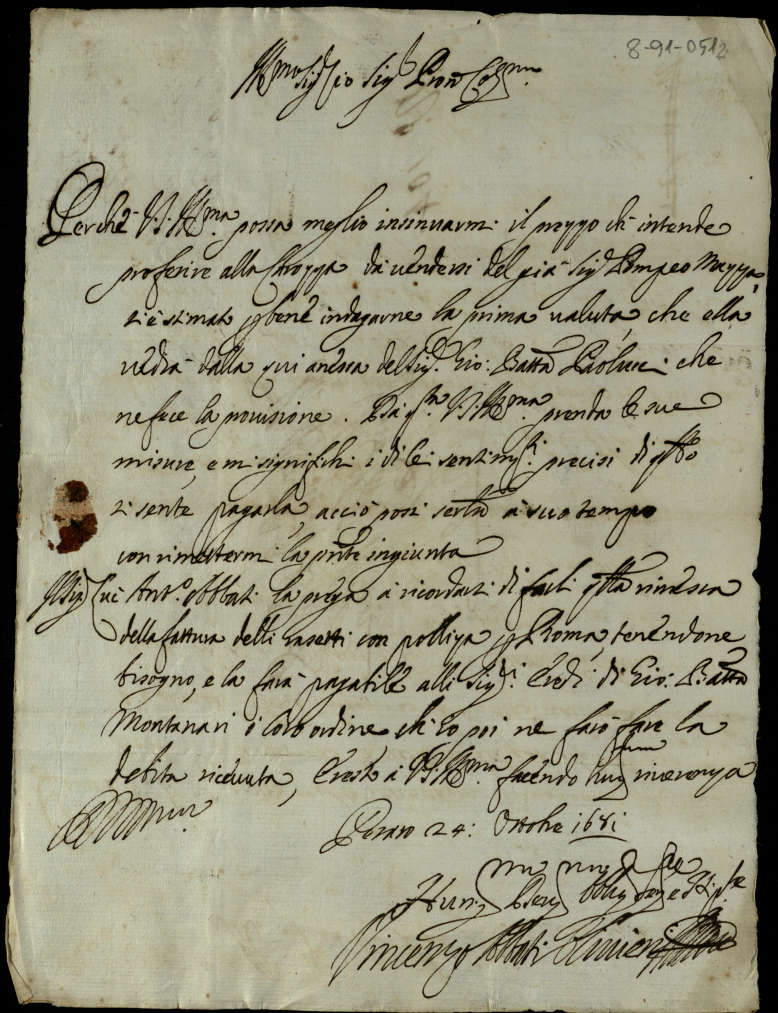 8-91-0512
Ill.mo Sig.r Zio Sig.r Pron Col.mo
Perche V.S. Ill.ma possa meglio insinuarmi il prezzo che intende
proferire alla Carozza da vendersi del già Sig.r Pompeo Mazza,
si è stimato bene indagarne la prima valuta, che ella
vedrà dalla qui anessa del Sig.r Gio: Batta Paolucci che
ne fece la provisione. Di q.ta V.S. Ill.ma prenda le sue
misure, e mi significhi i di lei sentim.ti precisi di q.to
si sente pagarla, acciò possi a suo tempo
con rimettermi la p.nte ingiunta
Il Sig.r Ant.o Abbati la prega a ricordarsi di farli q.ta rimessa
della fattura delli rasetti con polliza p Roma, tenendone
bisogno, e la farà pagabile alli Sig.ri Eredi di Gio: Batta
Montanari ò loro ordine che io poi ne farò fare la
debita riceuuta, e resto à V.S. Ill.ma facendo hum.ma riuerenza
Pesaro 24: Ottobre 1681
Di V.S. Ill.ma
Hum.mo Deu.mo Obblig.mo Ser.e e Nip.te
Vincenzo Abbati Oliuieri